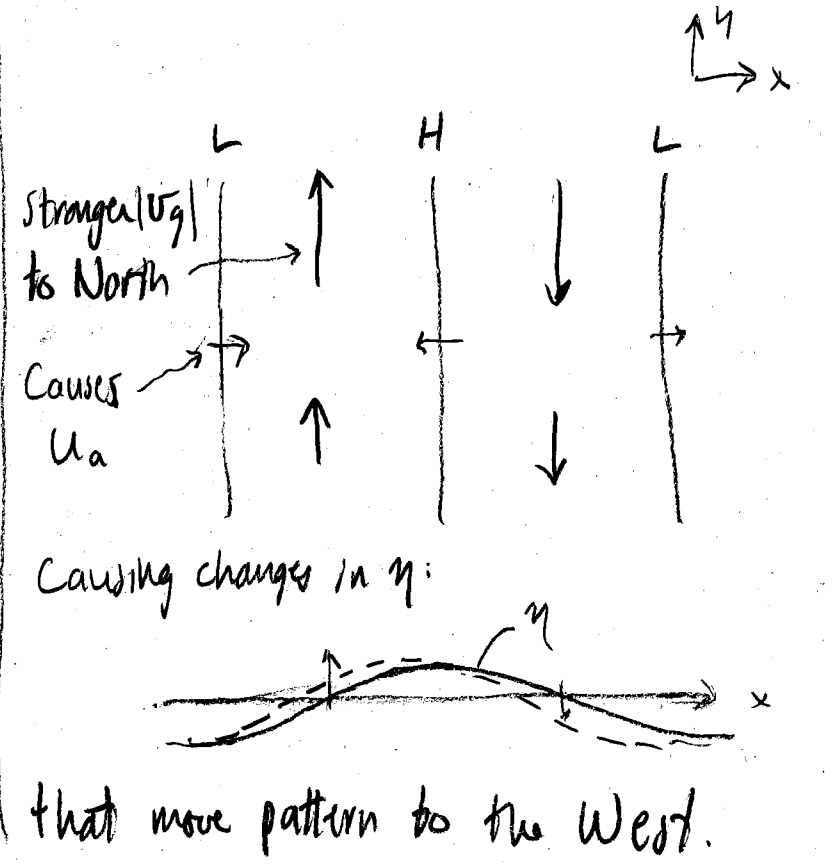 y
x
L H L
Stronger |Vg|
to North
Causes
Ua
Causing changes in η:
η
x
that move pattern to the West.